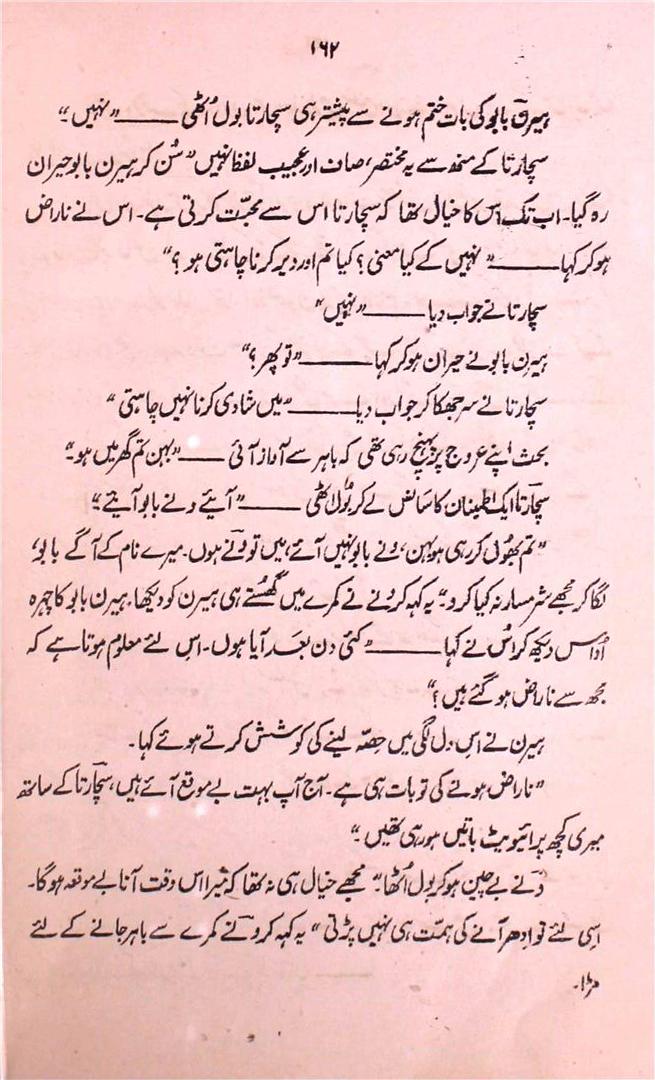 ۱۶۲
ہیرن بابو کی بات ختم ہونے سے پیشتر ہی سچارتا بول اُٹھی ——— ”نہیں۔“
سچارتا کے منھ سے یہ مختصر، صاف اور عجیب لفظ ”نہیں“ سُن کر ہیرن بابو حیران
رہ گیا۔ اب تک اس کا خیال تھا کہ سچارتا اس سے محبّت کرتی ہے۔ اس نے ناراض
ہو کر کہا ——— ”نہیں کے کیا معنی؟ کیا تم اور دیر کرنا چاہتی ہو؟“
سچارتا نے جواب دیا ——— ”نہیں“
ہیرن بابو نے حیران ہو کر کہا ——— ”تو پھر؟“
سچارتا نے سر جھکا کر جواب دیا ——— ”میں شادی کرنا نہیں چاہتی“
بحث اپنے عروج پر پہنچ رہی تھی کہ باہر سے آواز آئی ——— ”بہن تم گھر میں ہو۔“
سچارتا ایک اطمینان کا سانس لے کر بول اُٹھی ——— ”آیئے ونے بابو آیئے۔“
”تم بھول کر رہی ہو بہن، ونے بابو نہیں آئے، میں تو ونے ہوں۔ میرے نام کے آگے بابو،
لگا کر مجھے شرمسار نہ کیا کرو۔“ یہ کہہ کر ونے نے کمرے میں گھستے ہی ہیرن کو دیکھا۔ ہیرن بابو کا چہرہ
اُداس دیکھ کر اُس نے کہا ——— ”کئی دن بعد آیا ہوں۔ اس لئے معلوم ہوتا ہے کہ
مجھ سے ناراض ہو گئے ہیں؟“
ہیرن نے اس دل لگی میں حصّہ لینے کی کوشش کرتے ہوئے کہا۔
”ناراض ہونے کی تو بات ہی ہے۔ آج آپ بہت بے موقع آئے ہیں، سچارتا کے ساتھ
میری کچھ پرائیویٹ باتیں ہو رہی تھیں۔“
ونے بے چین ہو کر بول اُٹھا۔ ”مجھے خیال ہی نہ تھا کہ میرا اس وقت آنا بے موقعہ ہوگا۔
اسی لئے تو ادھر آنے کی ہمّت ہی نہیں پڑتی“ یہ کہہ کر ونے کمرے سے باہر جانے کے لئے
مڑا۔